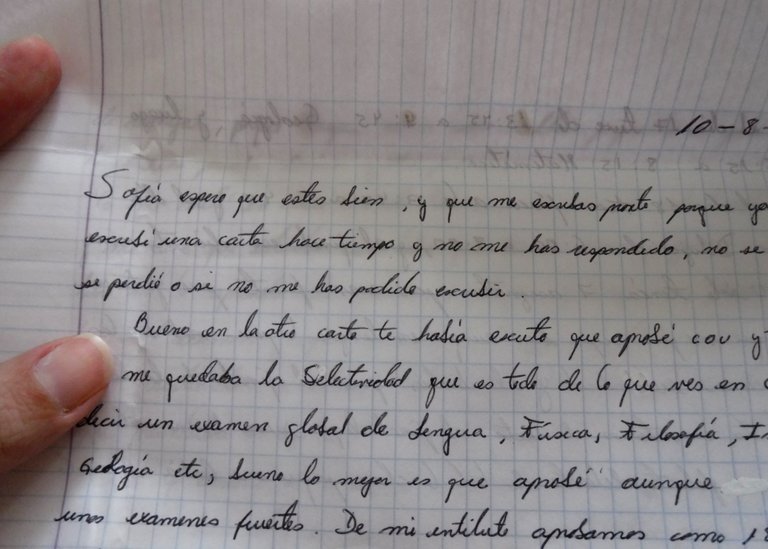 10-8-
Sofía espero que estes bien, y que me escribas pronto porque yo
escribí una carta hace tiempo y no me has respondido, no se
se perdió o si no me has podido escribir.
Bueno en la otra carta te había escrito que aprobé cou y
me quedaba la Selectividad que es todo de lo que ves en
decir un examen global de Lengua, Física, Filosofía,
Geología etc, bueno lo mejor es que aprobé aunque
unos examenes fuertes. De mi intituto aprobamos como